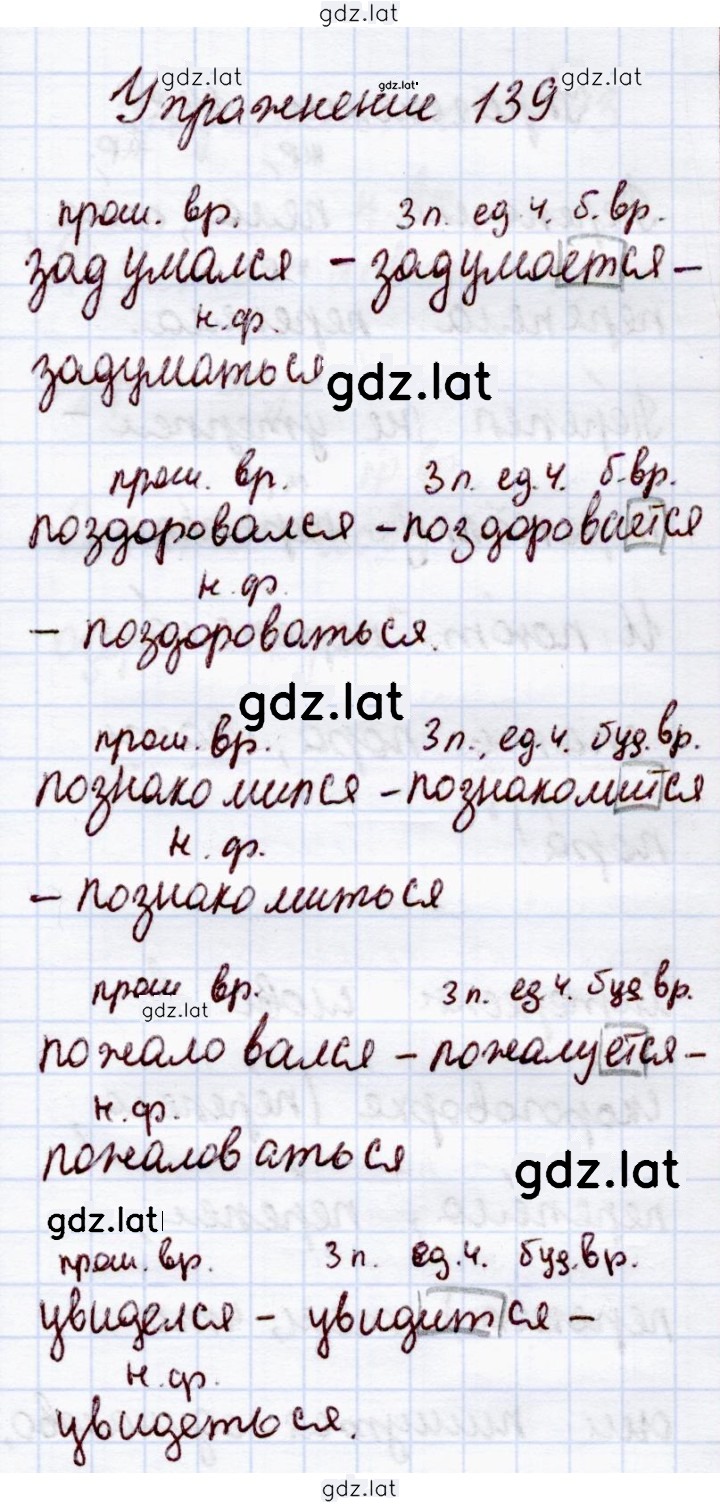 gdz.lat
gdz.lat gdz.lat gdz.lat
Упражнение 139
прош. вр. 3 п. ед. ч. б. вр.
задумался - задумается -
н. ф.
задуматься
gdz.lat
прош. вр. 3 п. ед. ч. б. вр.
поздоровался - поздоровается
н. ф.
- поздороваться.
gdz.lat
прош. вр. 3 п., ед. ч. буд. вр.
познакомился - познакомится
н. ф.
- познакомиться
прош вр. 3 п. ед ч. буд вр.
gdz.lat
пожаловался - пожалуется -
н. ф.
пожаловаться
gdz.lat
gdz.lat
прош. вр. 3 п. ед. ч. буд. вр.
увиделся - увидится -
н. ф.
увидеться.
gdz.lat